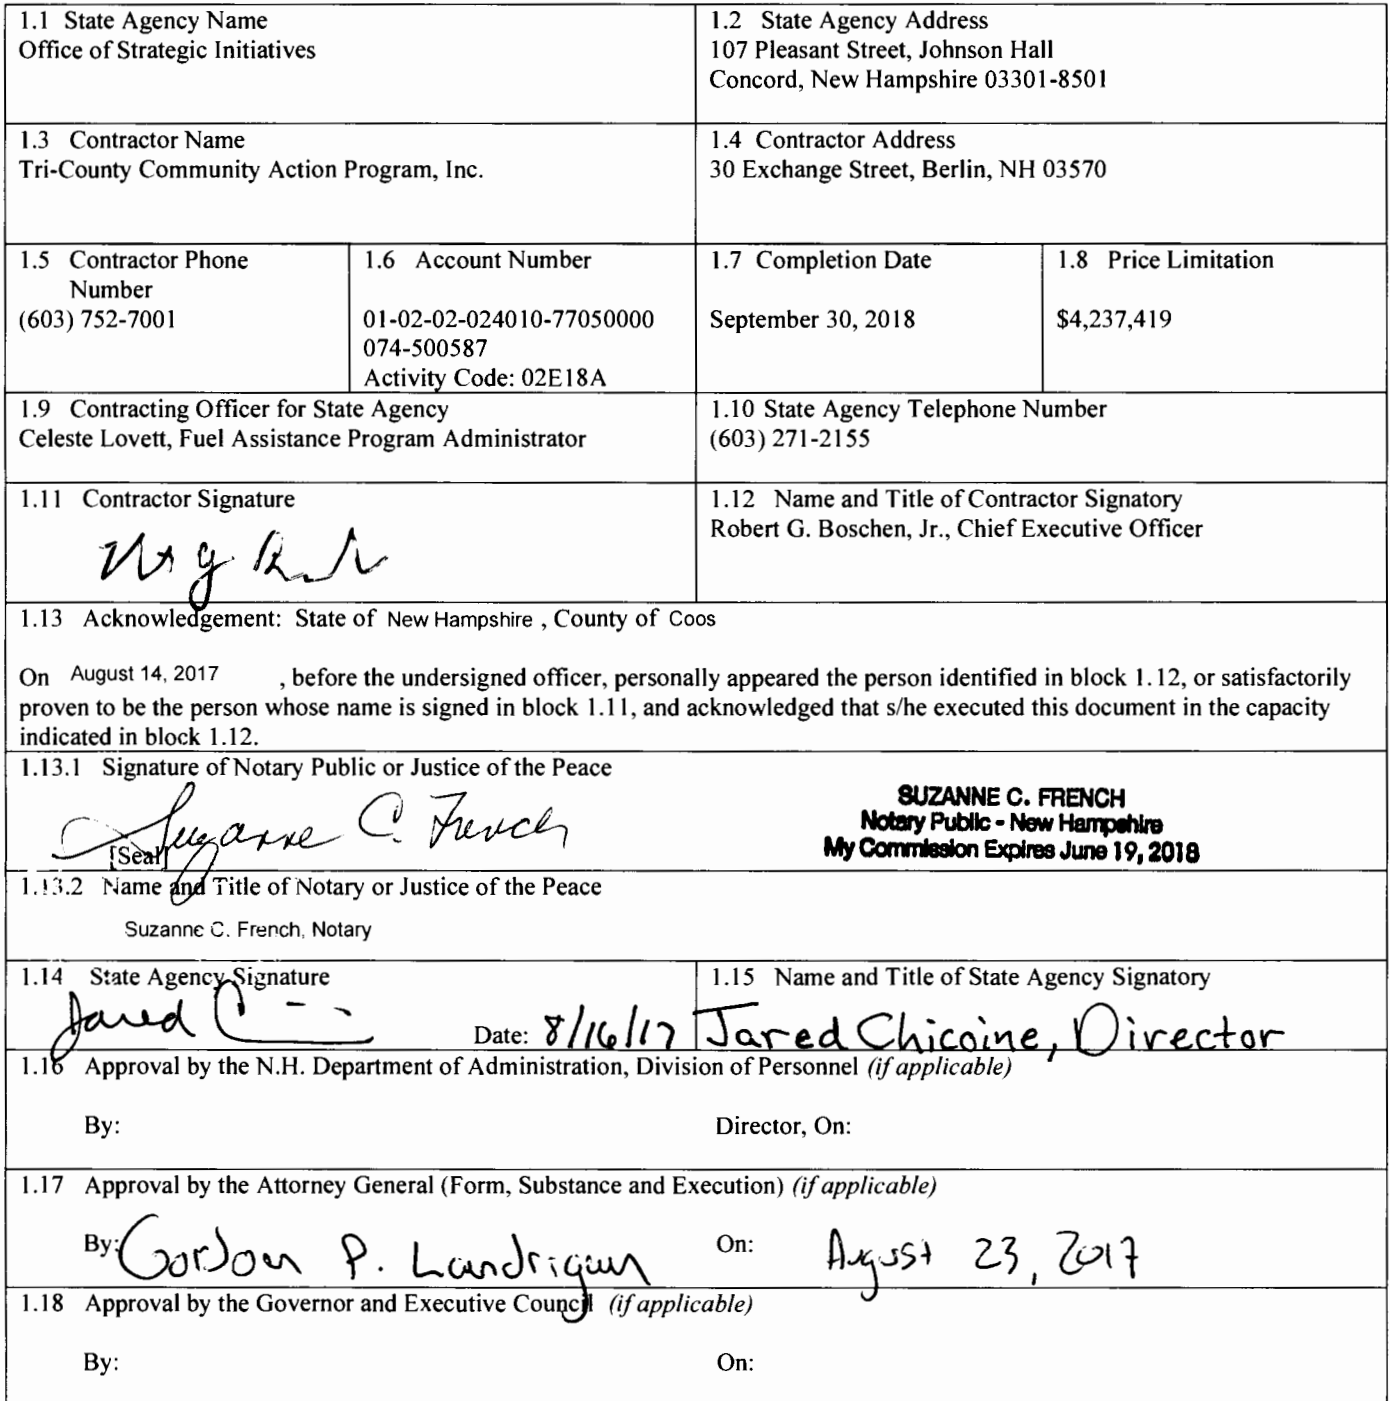 1.1 State Agency Name
Office of Strategic Initiatives
1.2 State Agency Address
107 Pleasant Street, Johnson Hall
Concord, New Hampshire 03301-8501
1.3 Contractor Name
Tri-County Community Action Program, Inc.
1.4 Contractor Address
30 Exchange Street, Berlin, NH 03570
1.5 Contractor Phone
Number
(603) 752-7001
1.6 Account Number
01-02-02-024010-77050000
074-500587
Activity Code: 02E18A
1.7 Completion Date
September 30, 2018
1.8 Price Limitation
$4,237,419
1.9 Contracting Officer for State Agency
Celeste Lovett, Fuel Assistance Program Administrator
1.10 State Agency Telephone Number
(603) 271-2155
1.11 Contractor Signature
1.12 Name and Title of Contractor Signatory
Robert G. Boschen, Jr., Chief Executive Officer
1.13 Acknowledgement: State of New Hampshire , County of Coos
On August 14, 2017 , before the undersigned officer, personally appeared the person identified in block 1.12, or satisfactorily
proven to be the person whose name is signed in block 1.11, and acknowledged that s/he executed this document in the capacity
indicated in block 1.12.
1.13.1 Signature of Notary Public or Justice of the Peace
Suzanne C. French
[Seal]
SUZANNE C. FRENCH
Notary Public - New Hampshire
My Commission Expires June 19, 2018
1.13.2 Name and Title of Notary or Justice of the Peace
Suzanne C. French, Notary
1.14 State Agency Signature
Jared
Date: 8/16/17
1.15 Name and Title of State Agency Signatory
Jared Chicoine, Director
1.16 Approval by the N.H. Department of Administration, Division of Personnel (if applicable)
By:
Director, On:
1.17 Approval by the Attorney General (Form, Substance and Execution) (if applicable)
By: Gordon P. Landrigan
On: August 23, 2017
1.18 Approval by the Governor and Executive Council (if applicable)
By:
On: